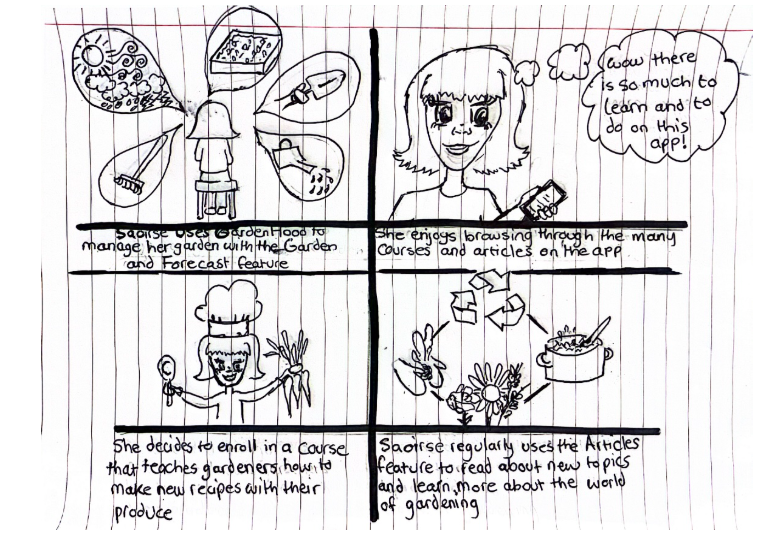 wow there
is so much to
learn and to
do on this
app!
Saoirse uses GardenHood to
manage her garden with the Garden
and Forecast feature
She enjoys browsing through the many
courses and articles on the app
She decides to enroll in a course
that teaches gardeners how to
make new recipes with their
produce
Saoirse regularly uses the Articles
feature to read about new topics
and learn more about the world
of gardening